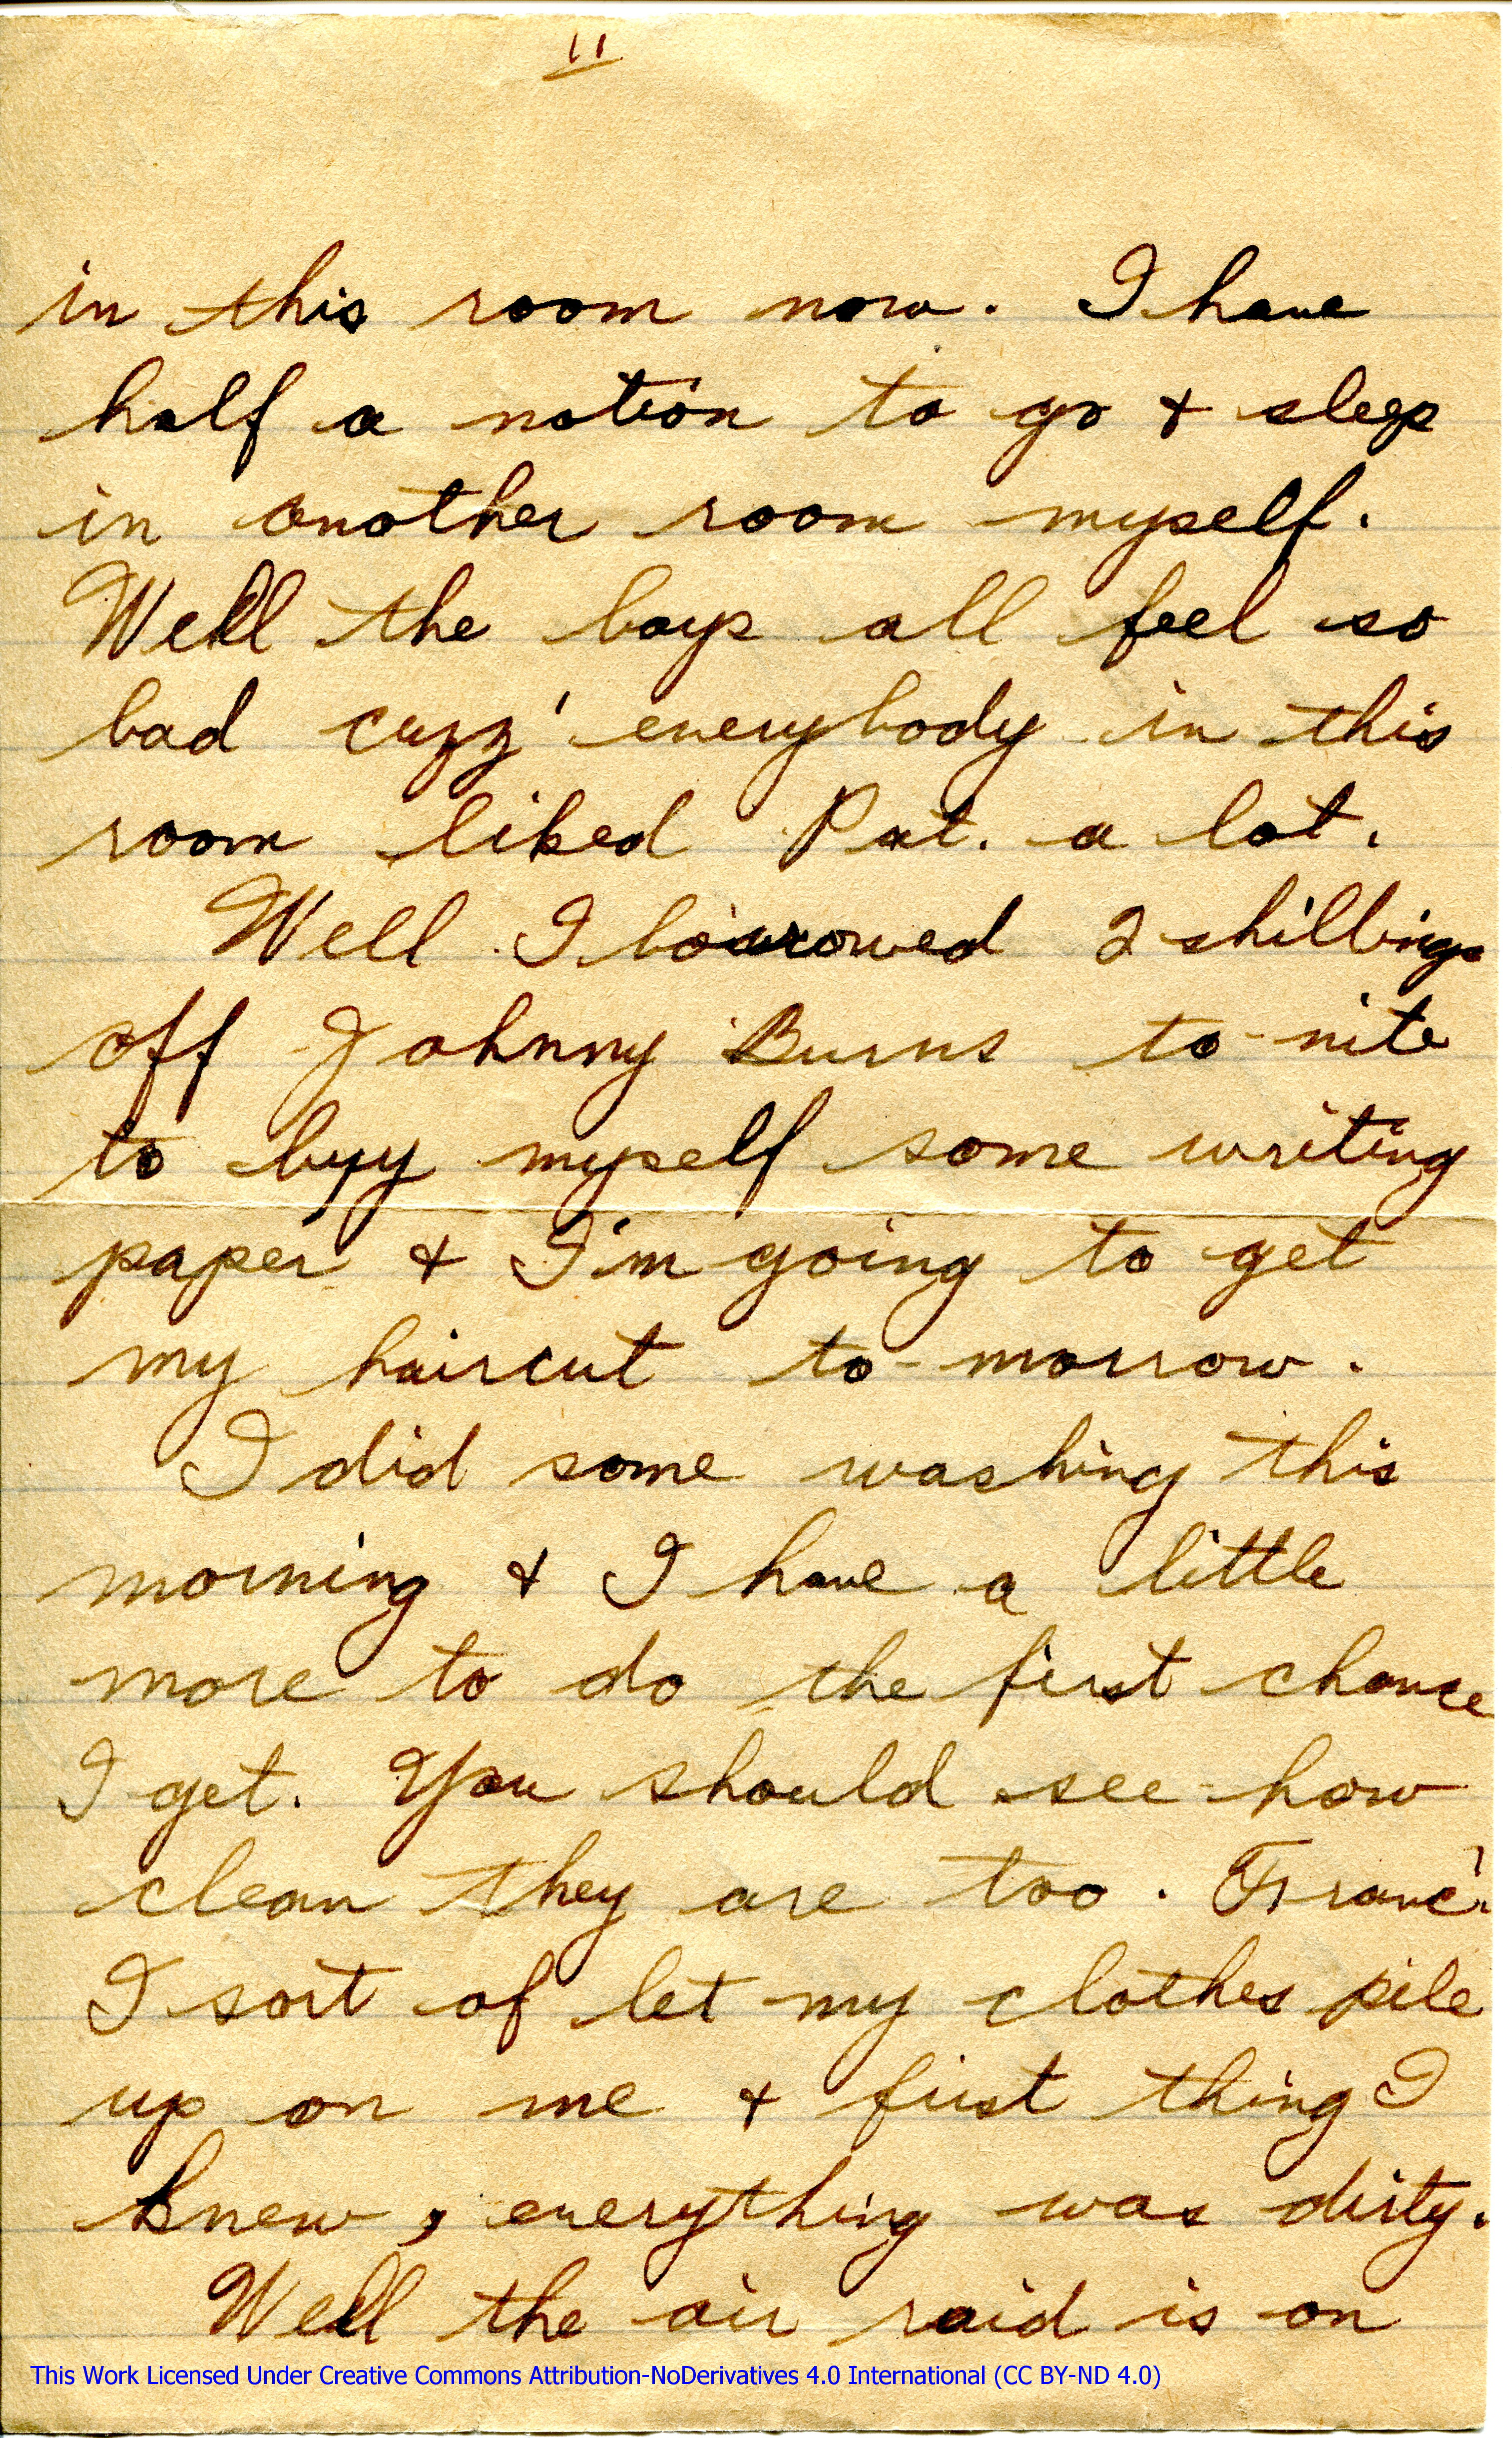 11
in this room now. I have
half a notion to go + sleep
in another room myself.
Well the boys all feel so
bad cuzz' everybody in this
room liked Pat. a lot.
Well I borrowed 2 shillings
off Johnny Burns to-nite
to buy myself some writing
paper + I'm going to get
my haircut to-morrow.
I did some washing this
morning + I have a little
more to do the first chance
I get. You should see how
clean they are too. Franc'.
I sort of let my clothes pile
up on me + first thing I
knew, everything was dirty.
Well the air raid is on
This Work Licensed Under Creative Commons Attribution-NoDerivatives 4.0 International (CC BY-ND 4.0)